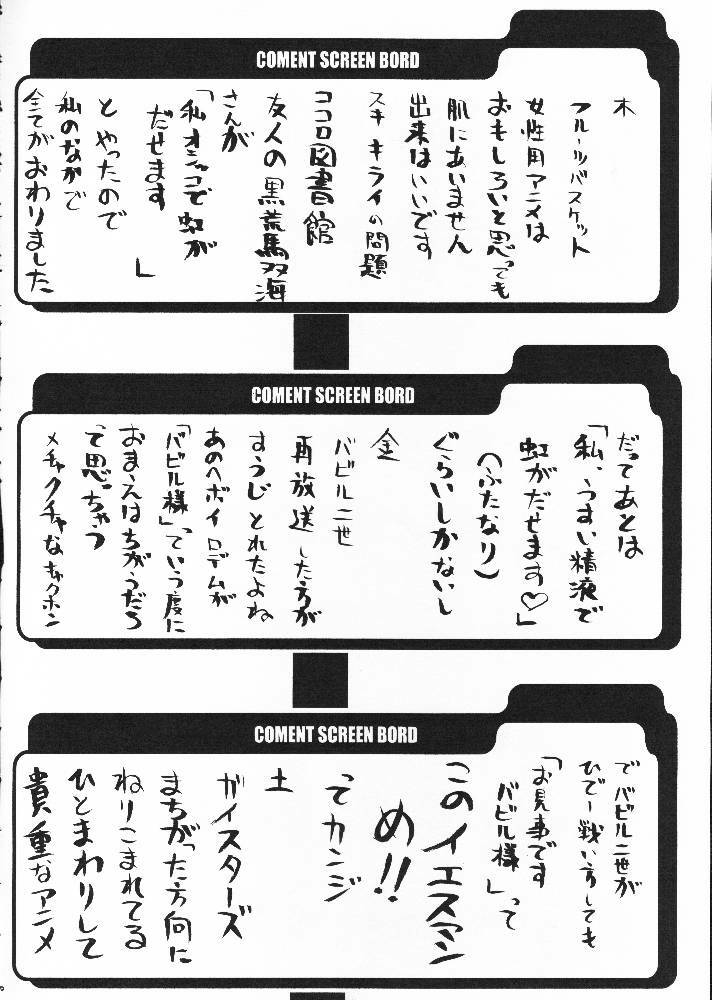 COMENT SCREEN BORD
木
フルーツバスケット
女性用アニメは
おもしろいと思っても
肌にあいません
出来はいいです
スキキライの問題
ココロ図書館
友人の黒荒馬双海
さんが
「私オシッコで虹が
だせます
」
とやったので
私のなかで
全てがおわりました
COMENT SCREEN BORD
だってあとは
「私、うすい精液で
虹がだせます♡」
(ふたなり)
ぐらいしかないし
金
バビルニ世
再放送した方が
すうじとれたよね
あのヘボイロデムが
「バビル様」っていう度に
おまえはちがうだろ
って思っちゃう
メチャクチャなキャクホン
COMENT SCREEN BORD
でバビルニ世が
ひでー戦い方しても
「お見事です
バビル様」って
このイエスマン
め!!
てカンジ
土
ガイスターズ
まちがった方向に
ねりこまれてる
ひとまわりして
貴重なアニメ